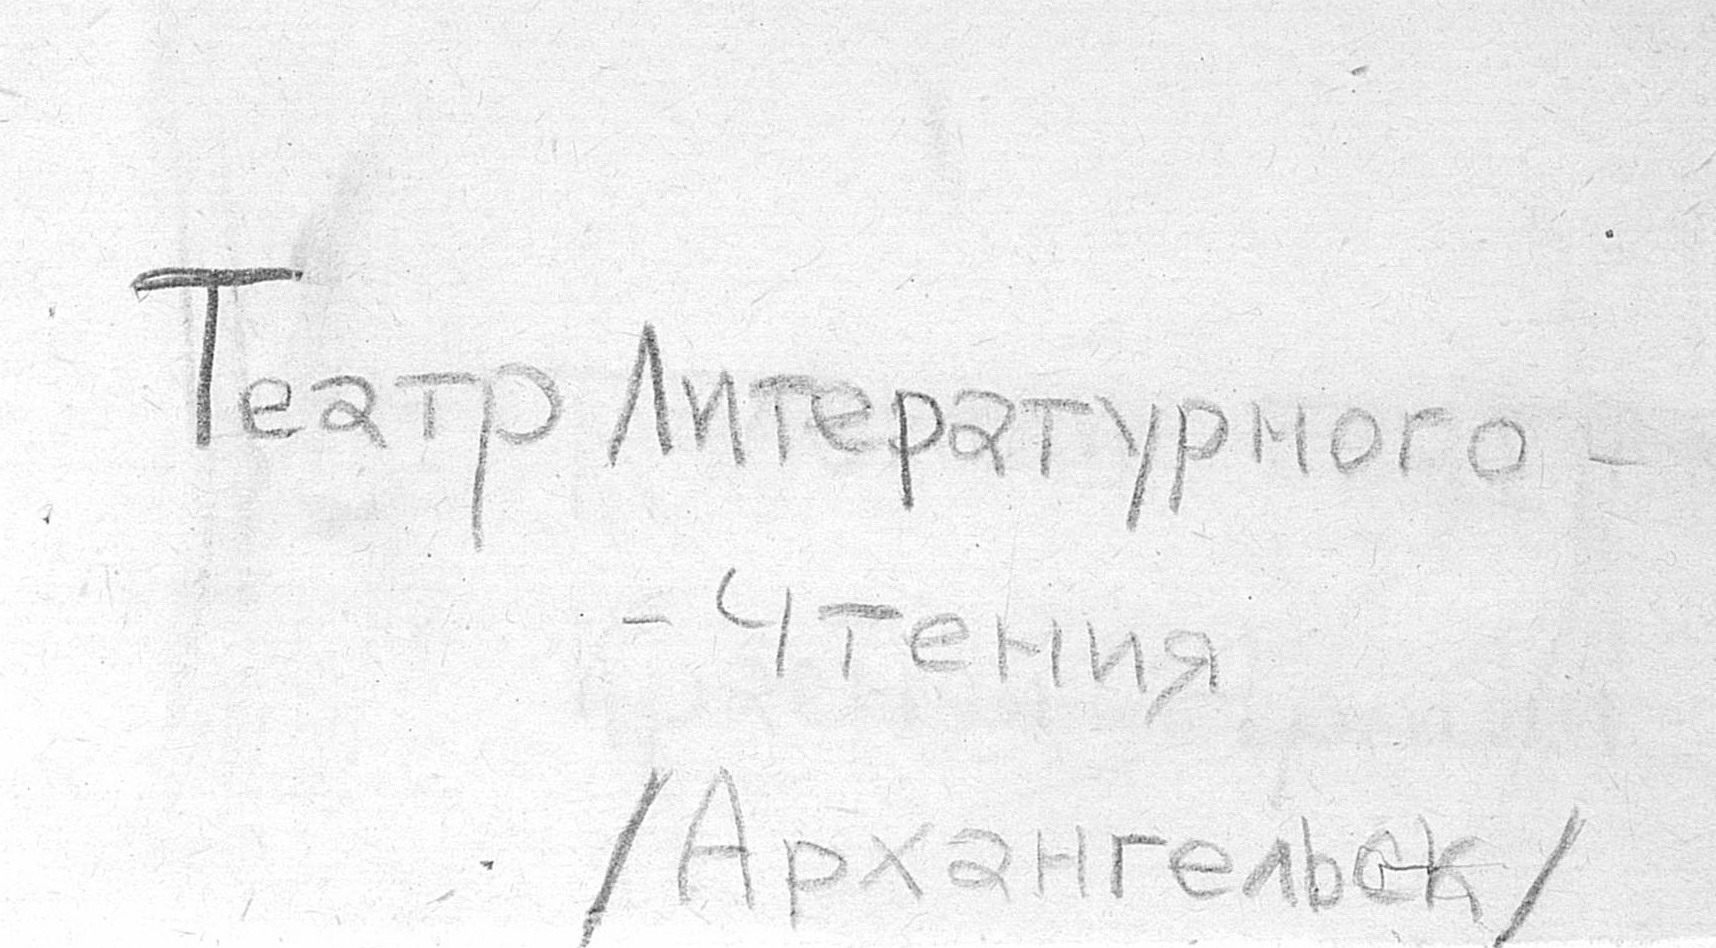 Театр Литературного -
- Чтения
/Архангельск/